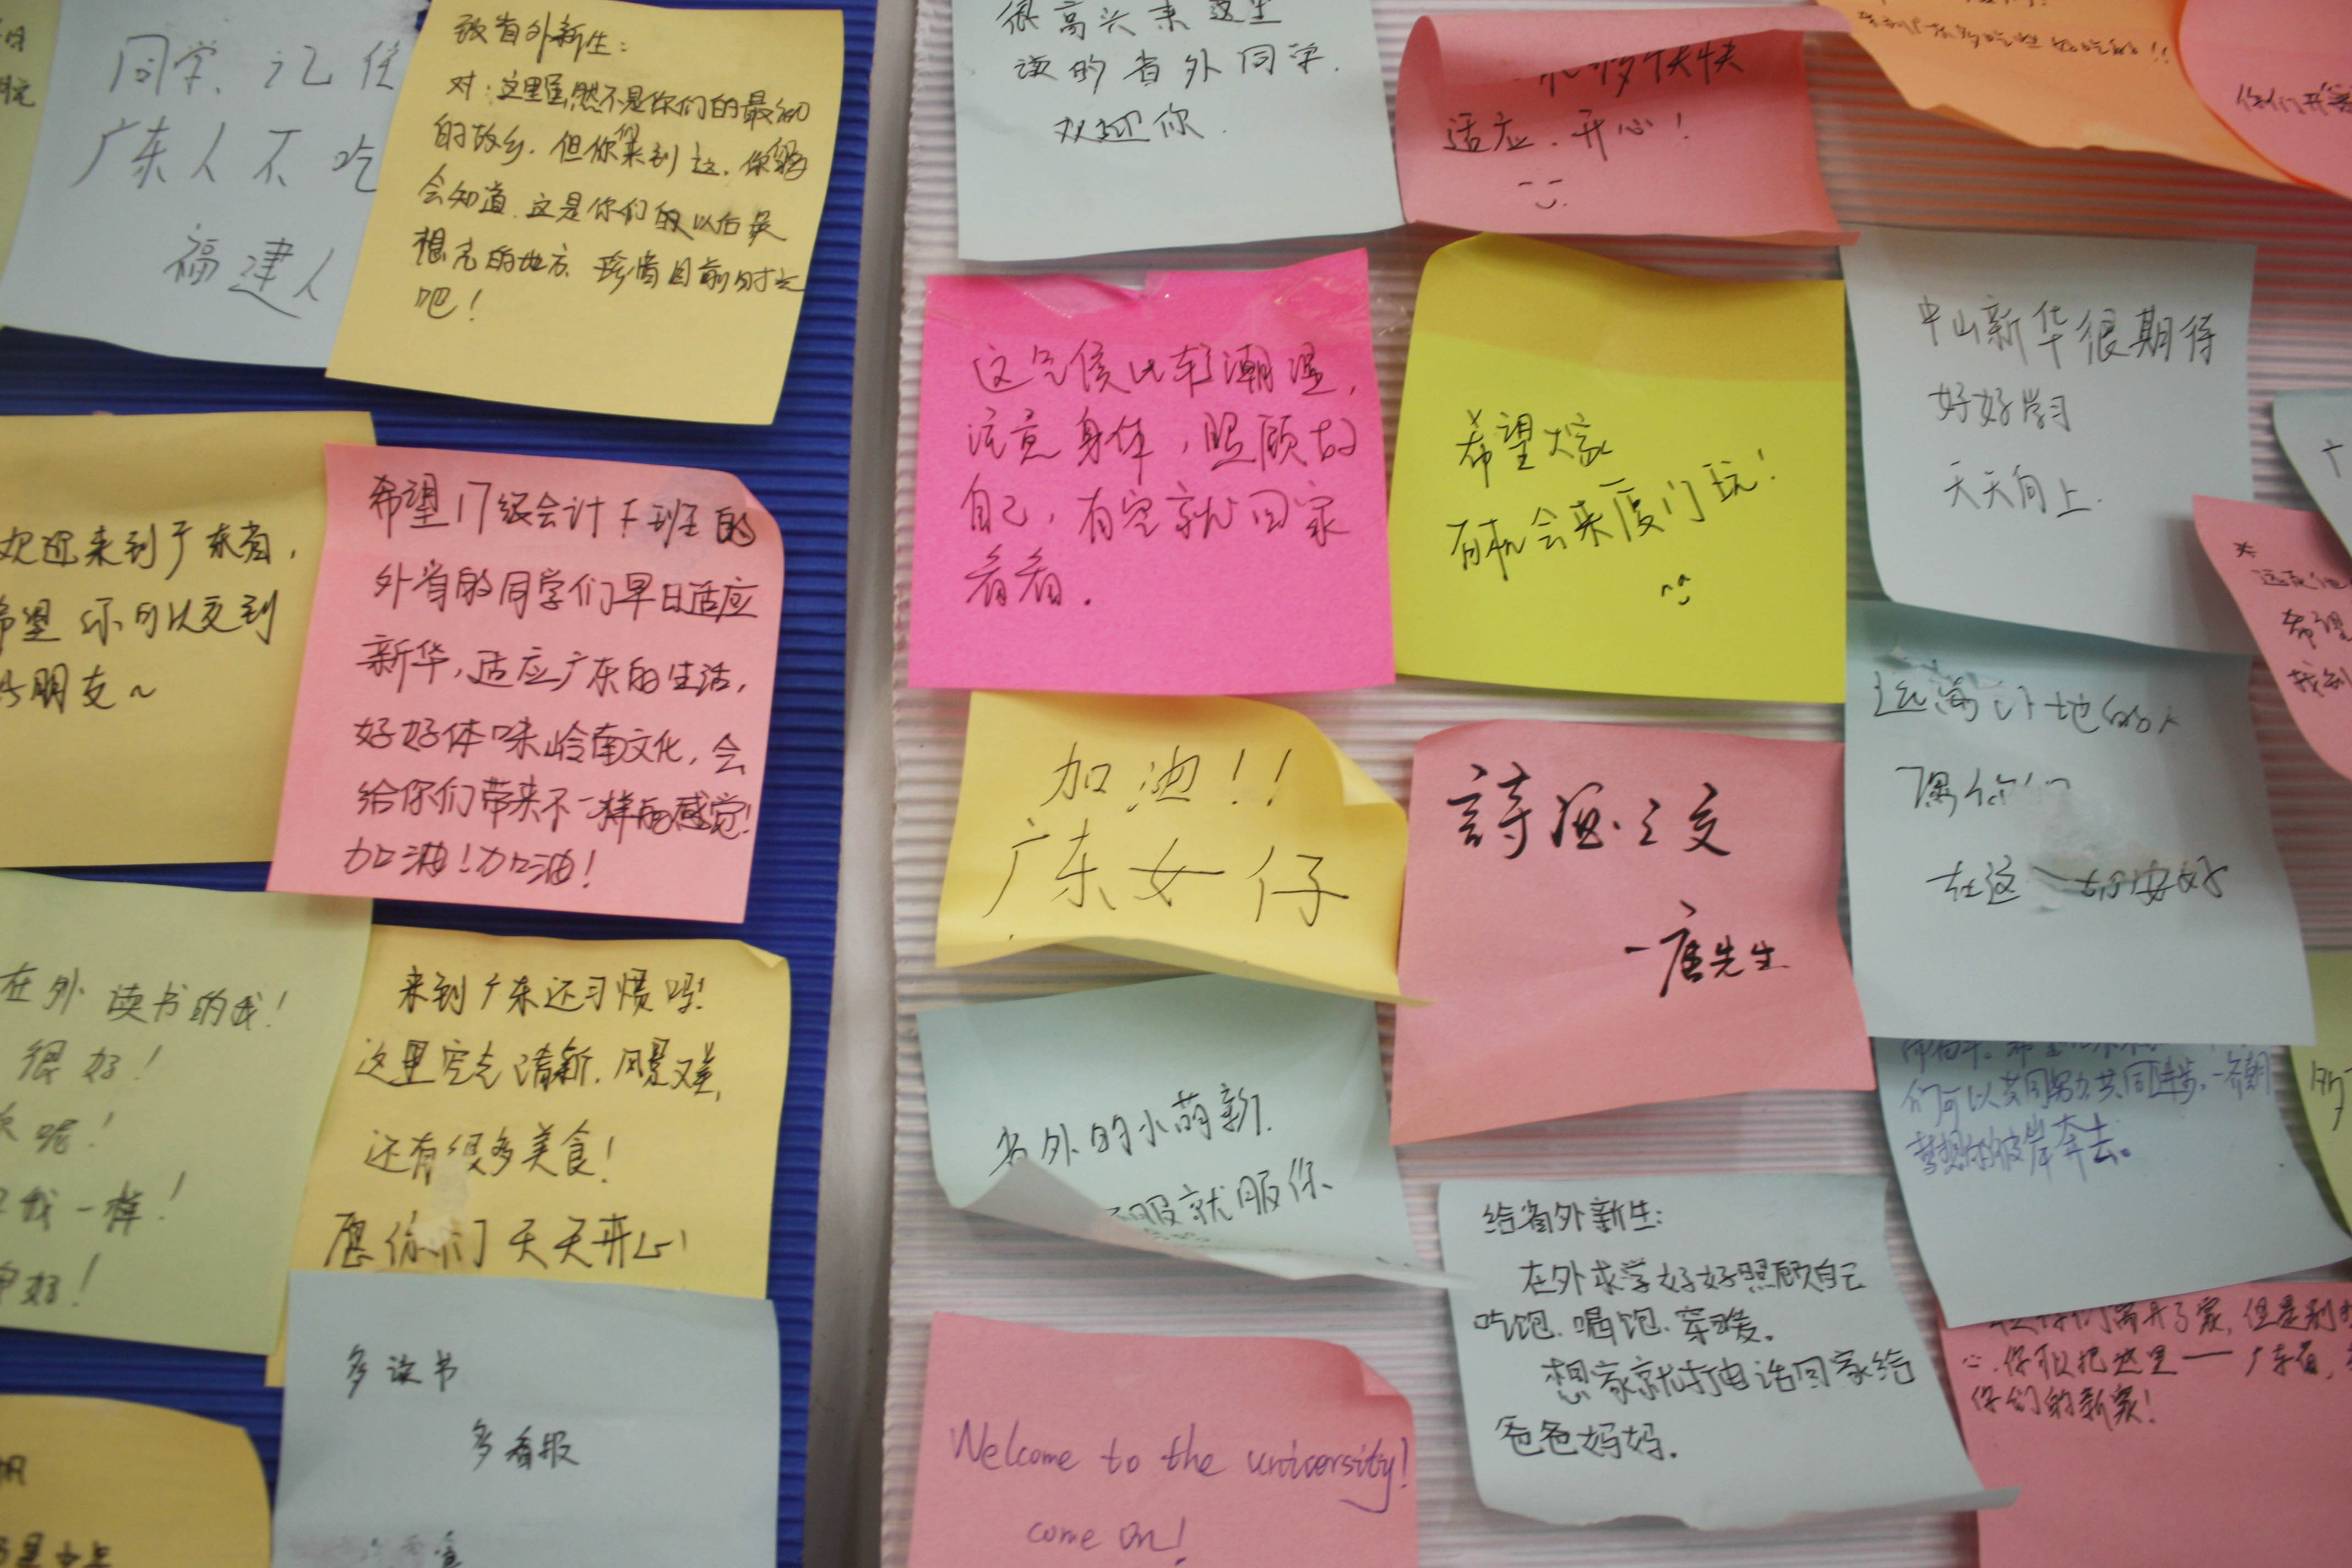 同学、记住
广东人不吃
福建人
致省外新生：
对：这里虽然不是你们的最初
的故乡．但你们来到这．你们
会知道．这是你们的以后最
想念的地方．珍惜目前时光
吧！
欢迎来到广东省，
希望你可以交到
好朋友～
希望17级会计下班的
外省的同学们早日适应
新华，适应广东的生活，
好好体味岭南文化，会
给你们带来不一样的感觉！
加油！加油！
在外读书的我！
很好！
呢！
我一样！
好！
来到广东还习惯吗！
这里空气清新．风景又美，
还有很多美食！
愿你们天天开心！
多读书
多看报
很高兴来这里
读的省外同学．
欢迎你．
快快
适应．开心！
这气候比较潮湿，
注意身体，照顾好
自己，有空就回家
看看．
希望大家
有机会来厦门玩！
中山新华很期待
好好学习
天天向上．
加油！！
广东女仔
詩酒之交
一唐先生
远离 地的人
愿你们
在这一切安好
省外的小萌新．
不服就服你
们可以共同努力共同进步，一齐朝
梦想的彼岸奔去。
给省外新生：
在外求学好好照顾自己
吃饱．喝饱．穿暖。
想家就打电话回家给
爸爸妈妈．
Welcome to the university!
come on!
你们离开了家，但是别
心．你可以把这里——广东省，
你们的新家！
希望
找到
你们开